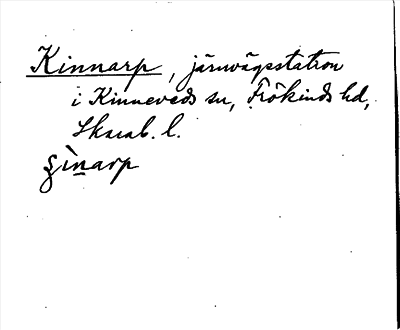 Kinnarp, järnvägsstation
i Kinneveds sn, Frökinds hd,
Skarab. l.
ʂìn̲arp